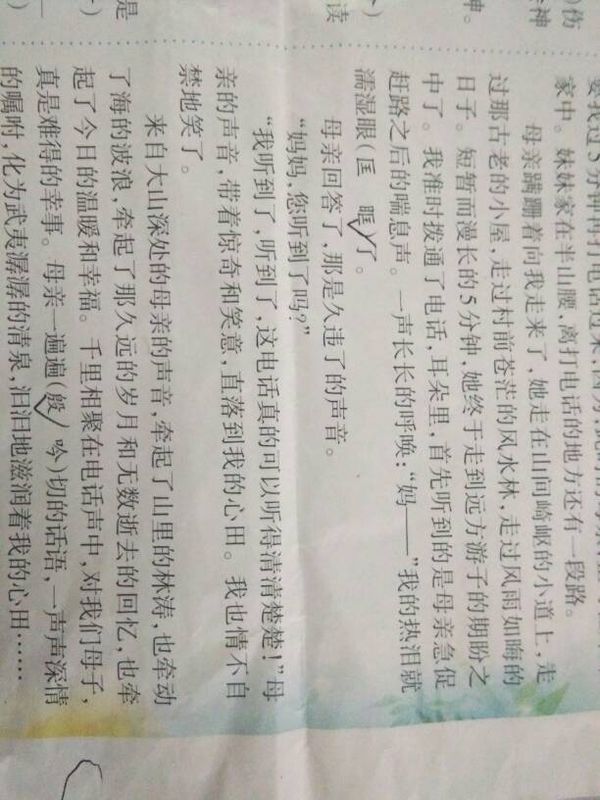 要我过5分钟再打电话过来,因为,此时的母亲
家中。妹妹家在半山腰,离打电话的地方还有一段路。
母亲蹒跚着向我走来了,她走在山间崎岖的小道上,走
过那古老的小屋,走过村前苍茫的风水林,走过风雨如晦的
日子。短暂而漫长的5分钟,她终于走到远方游子的期盼之
中了。我准时拨通了电话,耳朵里,首先听到的是母亲急促
赶路之后的喘息声。一声长长的呼唤:“妈——”我的热泪就
濡湿眼(匡 眶)了。
母亲回答了,那是久违了的声音。
“妈妈,您听到了吗?”
“我听到了,听到了,这电话真的可以听得清清楚楚!”母
亲的声音,带着惊奇和笑意,直落到我的心田。我也情不自
禁地笑了。
来自大山深处的母亲的声音,牵起了山里的林涛,也牵动
了海的波浪,牵起了那久远的岁月和无数逝去的回忆,也牵
起了今日的温暖和幸福。千里相聚在电话声中,对我们母子,
真是难得的幸事。母亲一遍遍(殷 吟)切的话语,一声声深情
的嘱咐,化为武夷潺潺的清泉,汩汩地滋润着我的心田……
)伤
神
神。
)
读
是
)